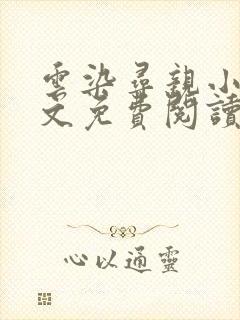 雲染尋親小
文免費閱讀
心以通靈